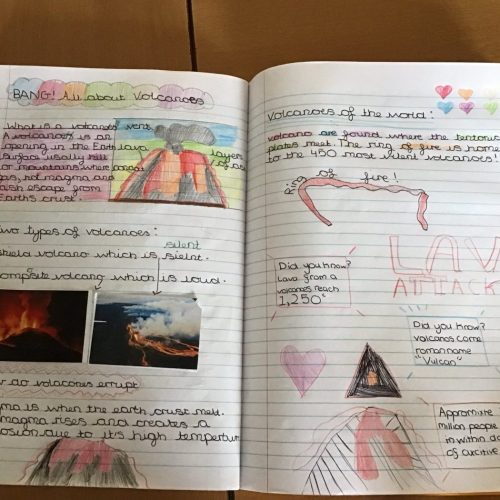 BANG! All about Volcanoes
What is a volcano?
A volcano is an
opening in the Earth
surface usally hill
or mountains where
gas, hot magma and
ash escape from
Earth's crust.
vent
lava
layers
of ash
Two types of volcanoes:
silent
shield volcano which is sielnt.
composite volcano which is loud.
How do volcanoes errupt
magma is when the earth crust melt.
magma rises and creates a
losion due to it's high tempertur
Volcanoes of the world:
volcano are found where the tentonic
plates meet. The ring of fire is home
to the 450 most vilent volcanoes!
Ring of fire!
Did you know?
Lava from a
volcanoes reach
1,250°
LAV
ATTACK
Did you know?
volcanos come
roman name
"Vulcan"
Approximate
million people
in within da
of active